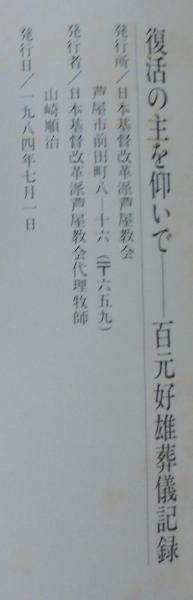 復活の主を仰いで――百元好雄葬儀記録
発行所／日本基督改革派芦屋教会
芦屋市前田町八―十六（〒六五九）
発行者／日本基督改革派芦屋教会代理牧師
山崎順治
発行日／一九八四年七月一日